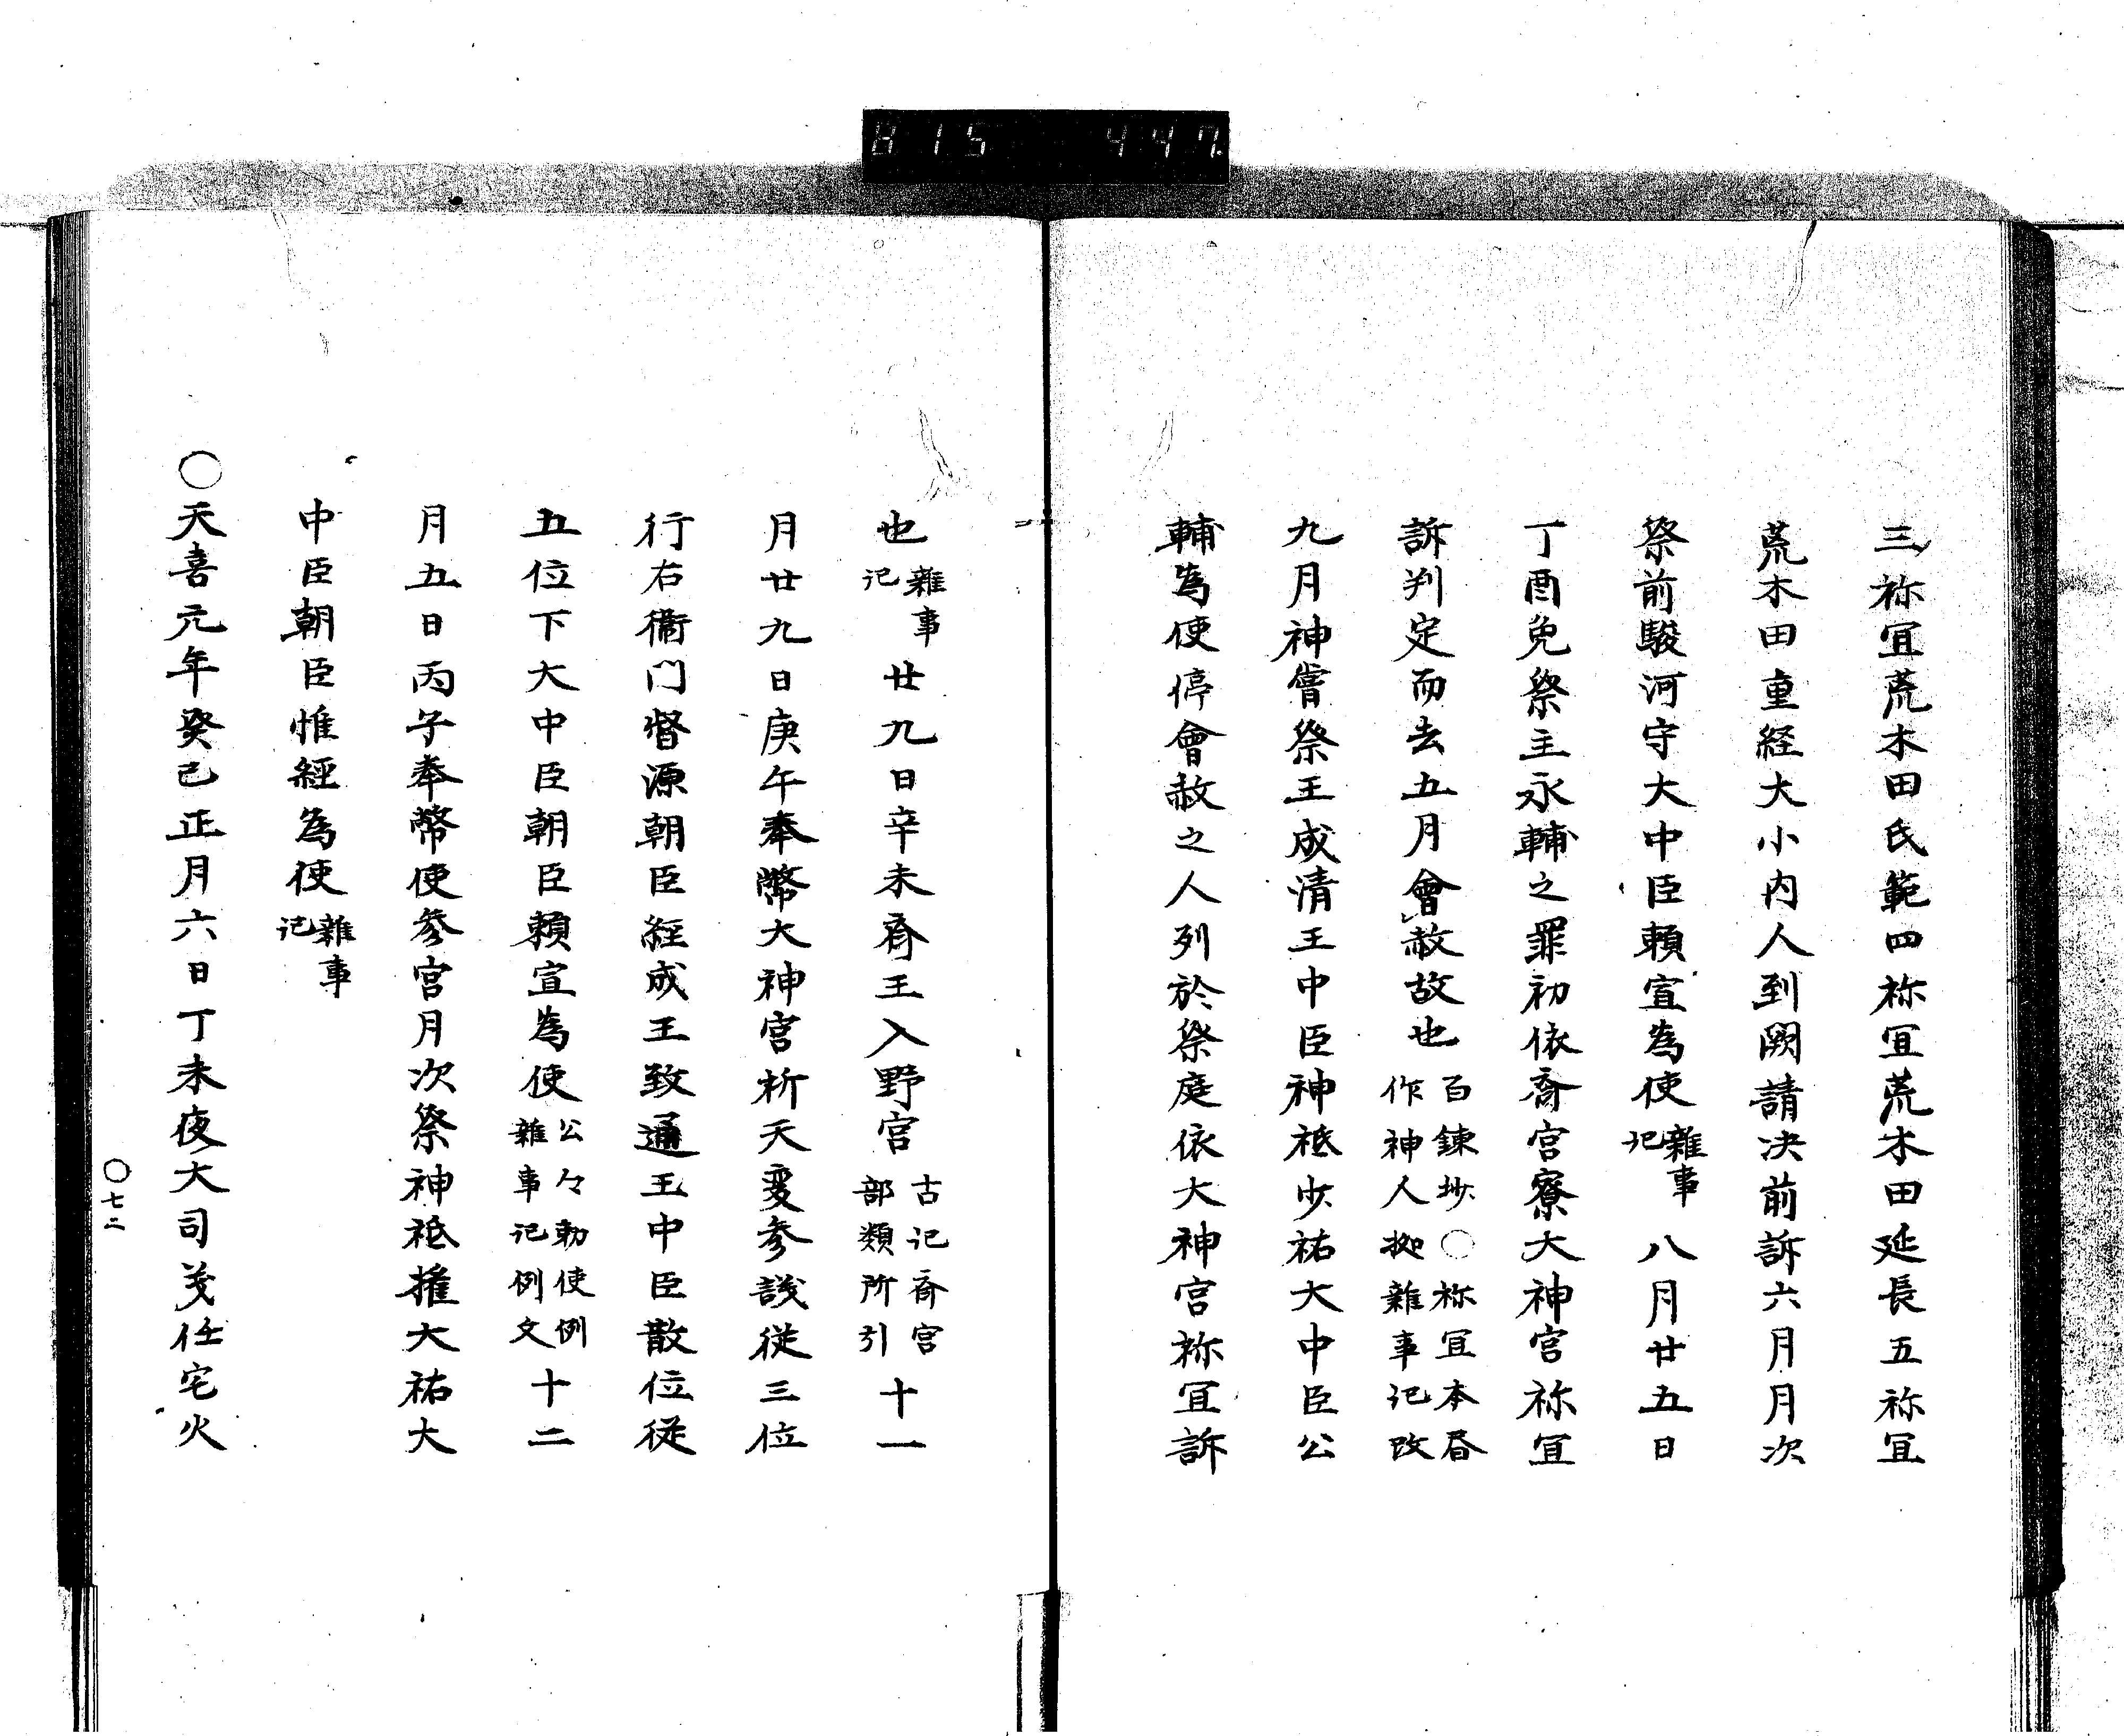 815 447
三祢冝荒木田氏範四祢冝荒木田延長五祢冝
荒木田重経大小内人到闕請决前訴六月月次
祭前駿河守大中臣頼宣為使雜事記八月廿五日
丁酉免祭主永輔之罪初依斎宮寮大神宮祢冝
訴判定而去五月會赦故也百鍊抄〇祢冝本昏作神人拠雜事記改
九月神嘗祭王成清王中臣神祇少祐大中臣公
輔為使停會赦之人列於祭庭依大神宮祢冝訴
也雜事記廿九日辛未斎王入野宮古记斎宮部類所引十一
月廿九日庚午奉幣大神宮祈天変参議従三位
行右衛门督源朝臣経成王致通王中臣散位従
五位下大中臣朝臣頼宣為使公々勅使例雜事记例文十二
月五日丙子奉幣使参宮月次祭神祇権大祐大
中臣朝臣惟經為使雜事记
〇天喜元年癸己正月六日丁未夜大司茂任宅火
〇七二